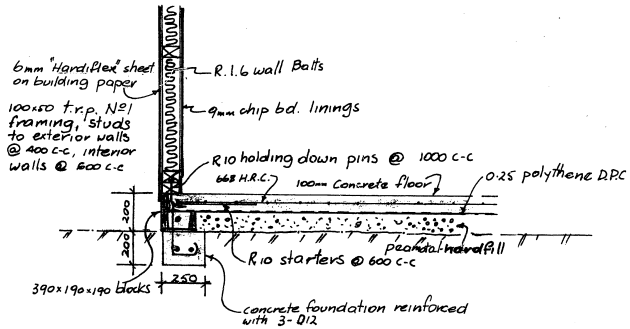 6mm "Hardiflex" sheet
on building paper
100x50 t.r.p. No1
framing, studs
to exterior walls
@ 400 c-c, interior
walls @ 600 c-c
R.1.6 wall Batts
9mm chip bd. linings
R10 holding down pins @ 1000 c-c
668 H.R.C.
100mm Concrete floor
0.25 polythene D.P.C
200
200
hardfill
R10 starters @ 600 c-c
250
390x190x190 blocks
concrete foundation reinforced
with 3-D12